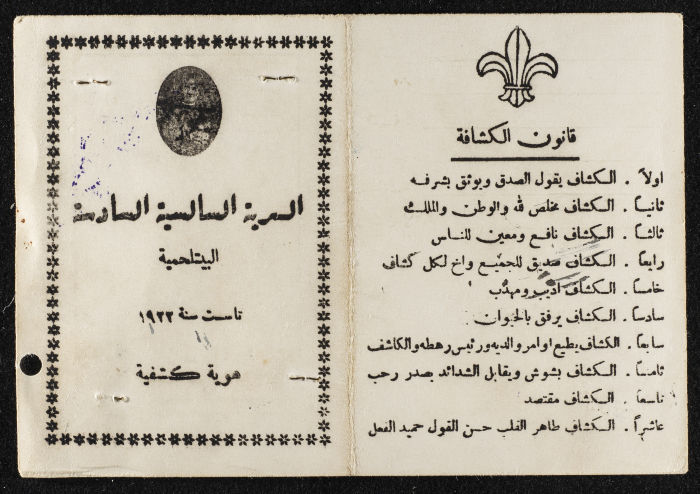 قانون الكشافة
اولاً . الكشاف يقول الصدق ويوثق بشرفه
ثانياً . الكشاف مخلص لله والوطن والملك
ثالثاً . الكشاف نافع ومعين للناس
رابعاً . الكشاف صديق للجميع واخ لكل كشاف
خامساً . الكشاف اديب ومهذب
سادساً . الكشاف يرفق بالحيوان
سابعاً . الكشاف يطيع اوامر والديه ورئيس رهطه والكاشف
ثامناً . الكشاف بشوش ويقابل الشدائد بصدر رحب
تاسعاً . الكشاف مقتصد
عاشراً . الكشاف طاهر القلب حسن القول حميد الفعل
السرية السالسية السادسة
البيتلحمية
تاسست سنة ١٩٢٢
هوية كشفية